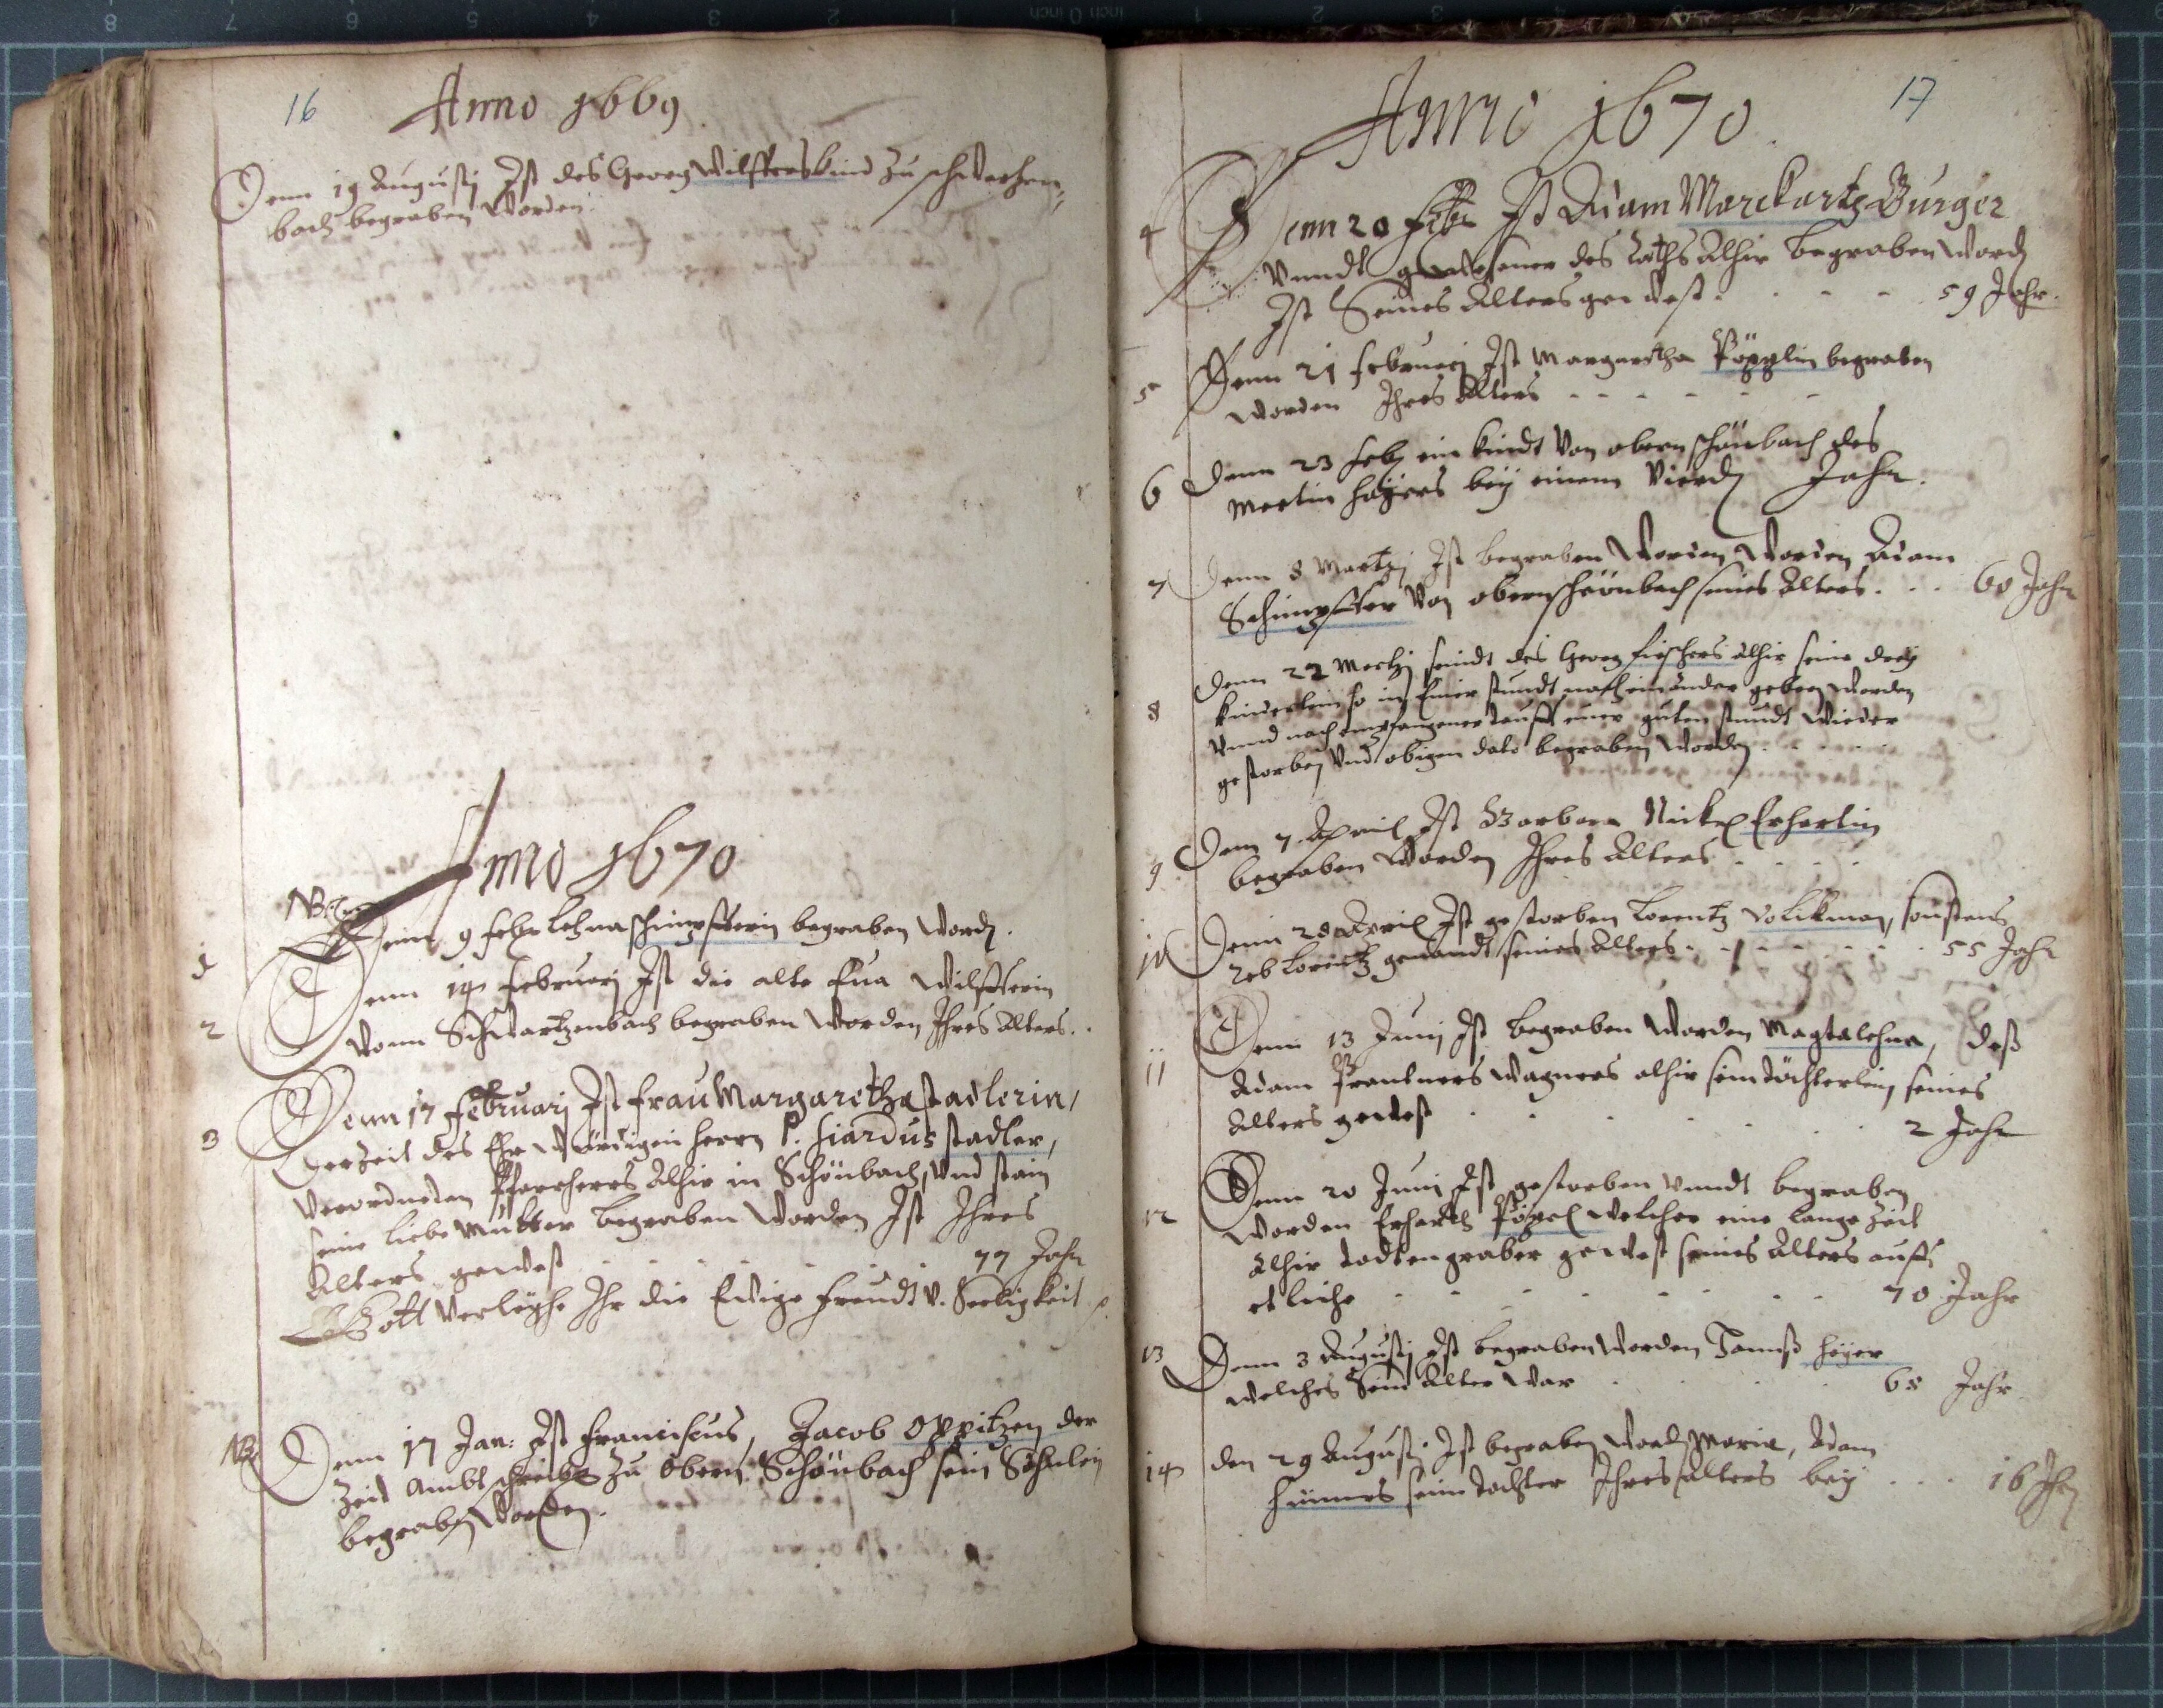 16
Anno 1669
Denn 19 Augustj Ist des Georg Wilfferts kind zu schwarzen-
bach begraben Worden.
Anno 1670
NB
1 Denn 9 Febr Lehna schimpfferin begraben Word.
2 Denn 14 Februarj Ist die alte Eua Wilfferin
vonn Schwartzenbach begraben Worden Ihres Alters.
3 Denn 17 Februarj Ist Frau Margaretha stadlerin,
derzeit des Ehr Würdigen Herrn P. Hiardus stadler,
verordneten Pfarrherrs Alhir in Schönbach, Vnd stain
seine liebe Mutter begraben Worden Ist Ihres
Alters gewest 77 Jahr
Gott verleyhe Ihr die Ewige Freudt v. Seeligkeit
NB Denn 17 Jan: Ist Franciscus, Jacob Oppitzen der
Zeit Ambt schreiber zu Obern Schönbach sein Söhnlein
begraben Worden.
17
Anno 1670
4 Denn 20 Febr Ist Adam Marckartz Burger
Vnndt gewesener des Raths Alhir begraben Word
Ist Seines Alters gewest - - - 59 Jahr.
5 Denn 21 Februarj Ist Margaretha Pöpplin begraben
Worden Ihres Alters - - - - - -
6 Denn 23 Feb ein kindt Von obern schönbach des
Martin Hayers bey einem Vierd Jahr.
7 Denn 8 Martzj Ist begraben Worden Worden Adam
Schimpffer Von obernschönbach seines Alters. . . 60 Jahr
8 Denn 22 Mertzj seindt des Georg Fischers Alhir seine drey
kinderlein so in Einer stundt nach einander geborn worden
Vnnd nach empfangener tauff einer guten stundt wieder
gestorben Vnd obigen dato begraben Worden.
9 Denn 7 April Ist Barbara Nickel Erhartin
begraben Worden Ihres Alters . . . .
10 Denn 28 April Ist gestorben Lorentz Volckman, sonsten
Lorentz genandt seines Alters - - - - - - 55 Jahr
11 Denn 13 Junj Ist begraben Worden Magtalehna, deß
Adam Frantners Wagners alhir sein töchterlein seines
Alters gewest . . . . . 2 Jahr
12 Denn 20 Junj Ist gestorben Vnndt begraben
Worden Erhardt Pöpel welcher eine lange Zeit
Alhir todtengraber gewest seines Alters auff
etliche - - - - - - - 70 Jahr
13 Denn 3 Augustj Ist begraben Worden Hanß Heyer
welches Sein Alter War . . . . 68 Jahr
14 den 29 Augustj Ist begraben Word Maria, Adam
Hüners sein tochter Ihres Alters bey . . . 16 Jhr